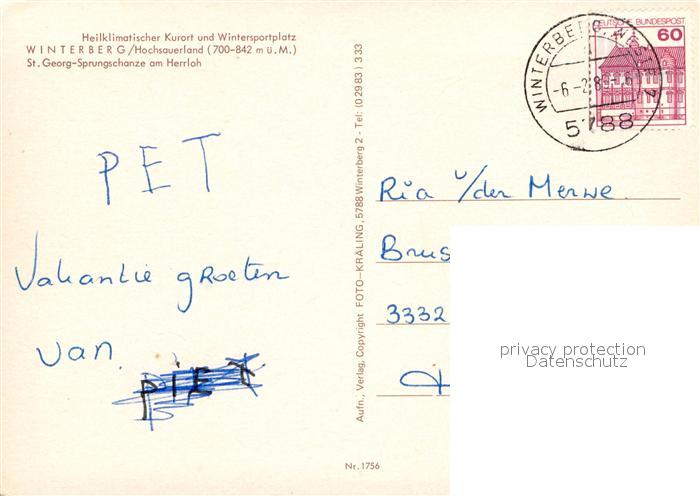 Heilklimatischer Kurort und Wintersportplatz
WINTERBERG/Hochsauerland (700-842 m ü. M.)
St. Georg-Sprungschanze am Herrloh
PET
Vakantie groeten
van
PIET
Aufn., Verlag, Copyright FOTO-KRÄLING, 5788 Winterberg 2 - Tel: (0 29 83) 3 33
Nr. 1756
DEUTSCHE BUNDESPOST
60
WINTERBERG, WESTF
5788
Ria v/der Merwe
3332
privacy protection
Datenschutz